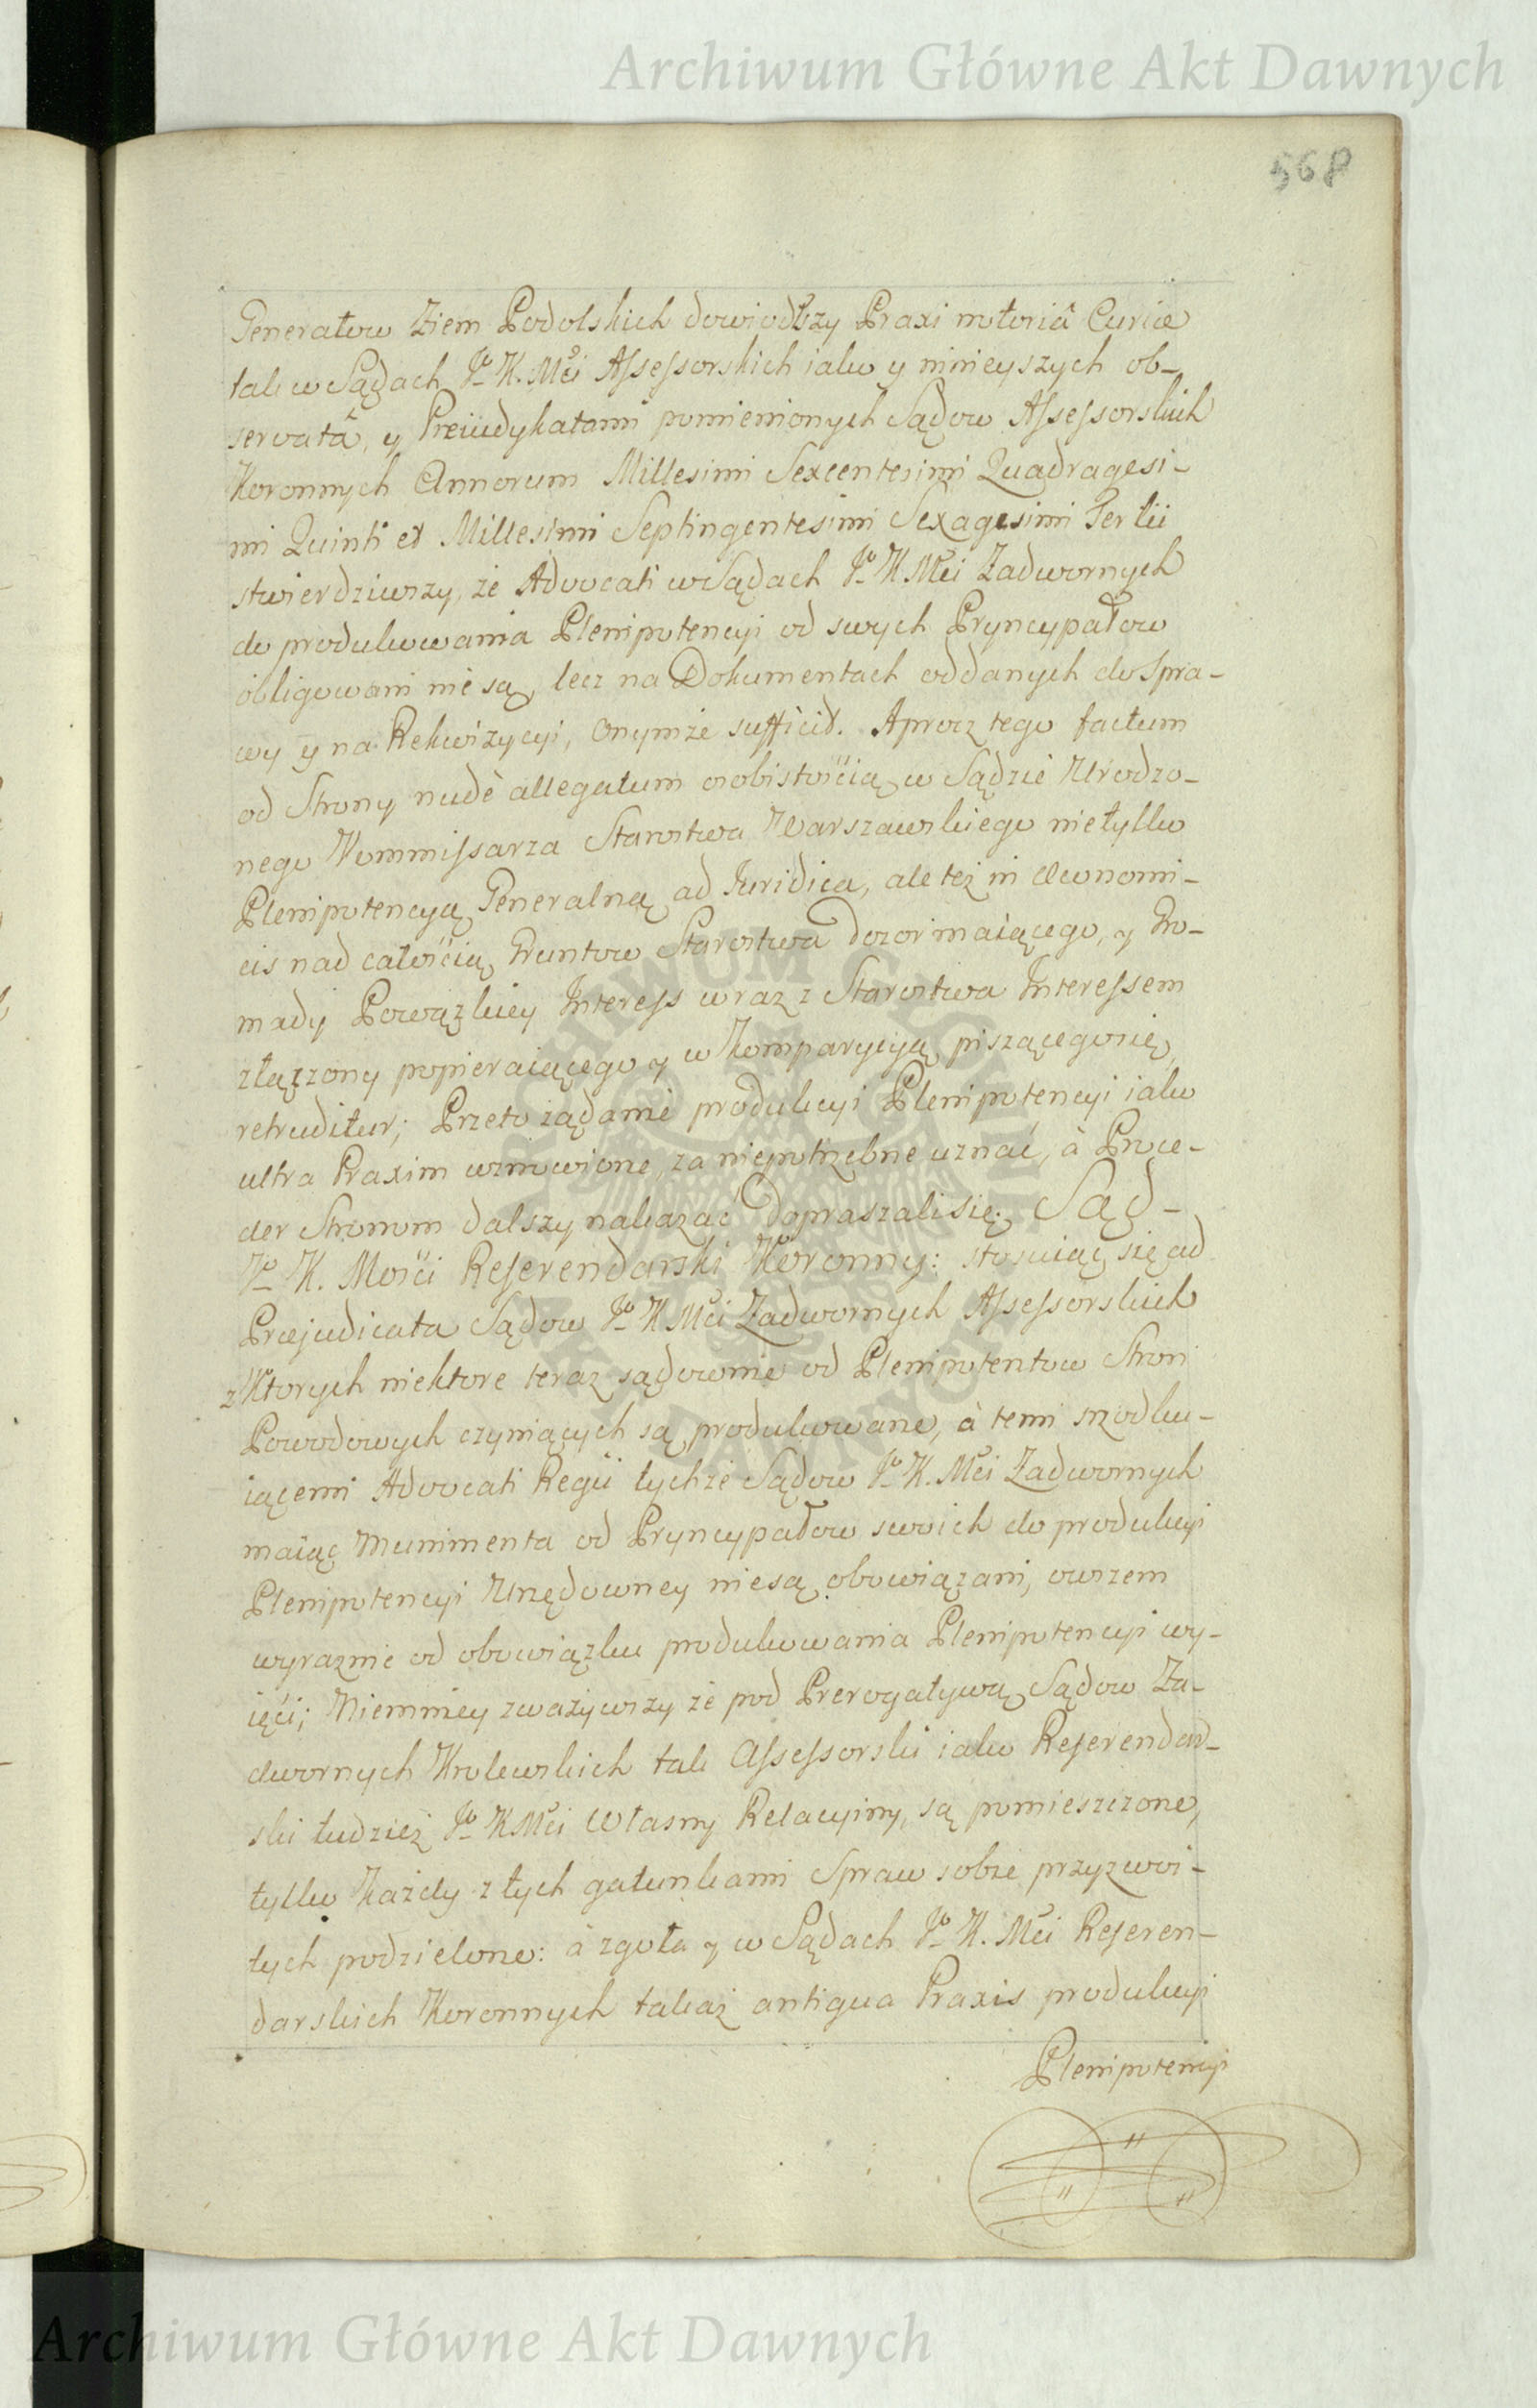 Archiwum Główne Akt Dawnych
568
Generałow Ziem Podolskich dowiodłszy Praxi notoriâ Curiæ
tak w Sądach Jo K. Mci Assessorskich iako y ninieyszych ob-
servatâ, y Preiudykatami pomienionych Sądow Assessorskich
Koronnych Annorum Millesimi Sexcentesimi Quadragesi-
mi Quinti et Millesimi Septingentesimi Sexagesimi Tertii
stwierdziwszy, że Advocati w Sądach Jo K Mci Zadwornych
do produkowania Plenipotencyi od swych Pryncypałow
obligowani nie są, lecz na Dokumentach oddanych do Spra-
wy y na Rekwizycyi, onymże sufficit. A procz tego factum
od Strony nudè allegatum osobistością w Sądzie Urodzo-
nego Kommissarza Starostwa Warszawskiego nietylko
Plenipotencyą Generalną ad Juridica, ale też in œconomi-
cis nad całością Gruntow Starostwa dozor maiącego, y Gro-
mady Powązkiey Interess wraz z Starostwa Interessem
złączony popieraiącego y w Komparycyą piszącego się,
retruditur; Przeto żądanie produkcyi Plenipotencyi iako
ultra Praxim wzmowione, za niepotrzebne uznać, à Proce-
der Stronom dalszy nakazać dopraszali się. Sąd-
Jo K. Mości Referendarski Koronny: stosuiąc się ad
Præjudicata Sądow Jo K Mci Zadwornych Assessorskich
z Ktorych niektore teraz sądownie od Plenipotentow Stron
Powodowych czyniących są produkowane, à temi srzodku-
iącemi Advocati Regii tychże Sądow Jo K. Mci Zadwornych
maiąc Munimenta od Pryncypałow swoich do produkcyi
Plenipotencyi Urzędowney nie są obowiązani, owszem
wyraznie od obowiązku produkowania Plenipotencyi wy-
ięci; Niemniey zważywszy że pod Prerogatywą Sądow Za-
dwornych Krolewskich tak Assessorski iako Referendar-
ski tudzież Jo K Mci Własny Relacyiny, są pomieszczone,
tylko Każdy z tych gatunkami Spraw sobie przyzwoi-
tych podzielone: à zgoła y w Sądach Jo K. Mci Referen-
darskich Koronnych takaż antiqua Praxis produkcyi
Plenipotencyi
Archiwum Główne Akt Dawnych